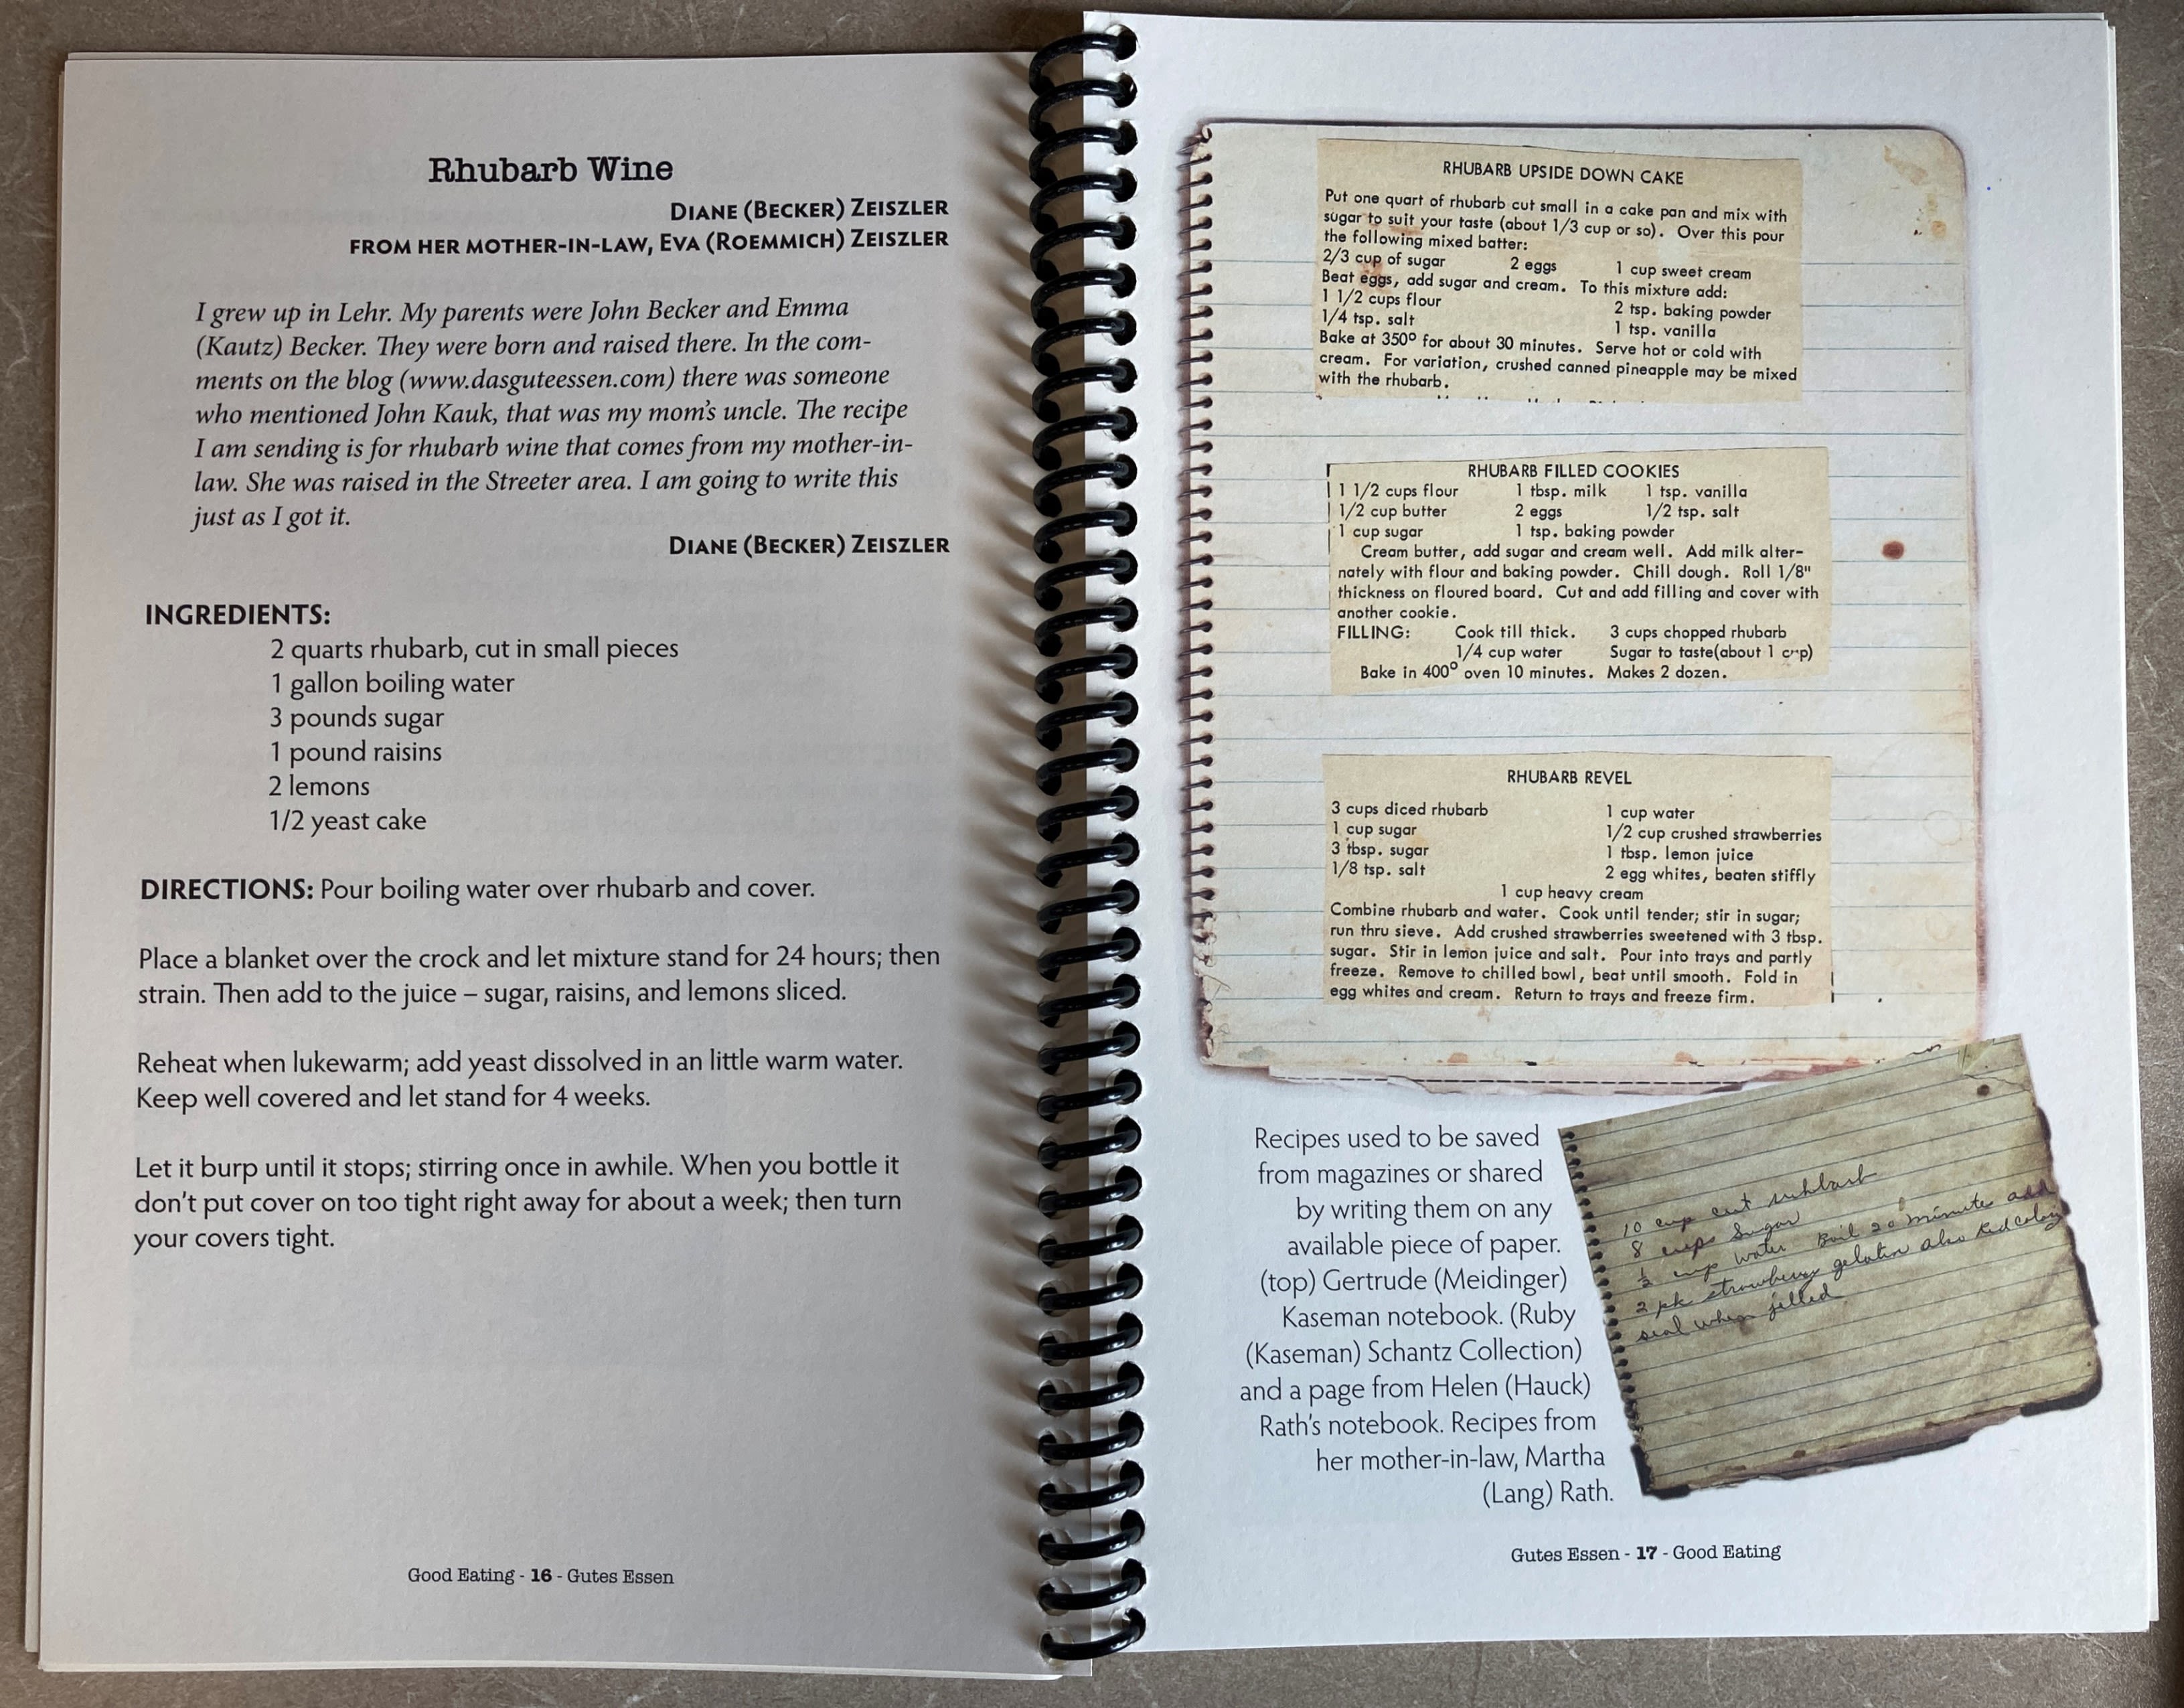 Rhubarb Wine
Diane (Becker) Zeiszler
from her mother-in-law, Eva (Roemmich) Zeiszler
I grew up in Lehr. My parents were John Becker and Emma
(Kautz) Becker. They were born and raised there. In the com-
ments on the blog (www.dasguteessen.com) there was someone
who mentioned John Kauk, that was my mom's uncle. The recipe
I am sending is for rhubarb wine that comes from my mother-in-
law. She was raised in the Streeter area. I am going to write this
just as I got it.
Diane (Becker) Zeiszler
INGREDIENTS:
2 quarts rhubarb, cut in small pieces
1 gallon boiling water
3 pounds sugar
1 pound raisins
2 lemons
1/2 yeast cake
DIRECTIONS: Pour boiling water over rhubarb and cover.
Place a blanket over the crock and let mixture stand for 24 hours; then
strain. Then add to the juice – sugar, raisins, and lemons sliced.
Reheat when lukewarm; add yeast dissolved in an little warm water.
Keep well covered and let stand for 4 weeks.
Let it burp until it stops; stirring once in awhile. When you bottle it
don't put cover on too tight right away for about a week; then turn
your covers tight.
Good Eating - 16 - Gutes Essen
RHUBARB UPSIDE DOWN CAKE
Put one quart of rhubarb cut small in a cake pan and mix with
sugar to suit your taste (about 1/3 cup or so). Over this pour
the following mixed batter:
2/3 cup of sugar 2 eggs 1 cup sweet cream
Beat eggs, add sugar and cream. To this mixture add:
1 1/2 cups flour 2 tsp. baking powder
1/4 tsp. salt 1 tsp. vanilla
Bake at 350º for about 30 minutes. Serve hot or cold with
cream. For variation, crushed canned pineapple may be mixed
with the rhubarb.
RHUBARB FILLED COOKIES
1 1/2 cups flour 1 tbsp. milk 1 tsp. vanilla
1/2 cup butter 2 eggs 1/2 tsp. salt
1 cup sugar 1 tsp. baking powder
Cream butter, add sugar and cream well. Add milk alter-
nately with flour and baking powder. Chill dough. Roll 1/8"
thickness on floured board. Cut and add filling and cover with
another cookie.
FILLING: Cook till thick. 3 cups chopped rhubarb
1/4 cup water Sugar to taste(about 1 cup)
Bake in 400º oven 10 minutes. Makes 2 dozen.
RHUBARB REVEL
3 cups diced rhubarb 1 cup water
1 cup sugar 1/2 cup crushed strawberries
3 tbsp. sugar 1 tbsp. lemon juice
1/8 tsp. salt 2 egg whites, beaten stiffly
1 cup heavy cream
Combine rhubarb and water. Cook until tender; stir in sugar;
run thru sieve. Add crushed strawberries sweetened with 3 tbsp.
sugar. Stir in lemon juice and salt. Pour into trays and partly
freeze. Remove to chilled bowl, beat until smooth. Fold in
egg whites and cream. Return to trays and freeze firm.
Recipes used to be saved
from magazines or shared
by writing them on any
available piece of paper.
(top) Gertrude (Meidinger)
Kaseman notebook. (Ruby
(Kaseman) Schantz Collection)
and a page from Helen (Hauck)
Rath's notebook. Recipes from
her mother-in-law, Martha
(Lang) Rath.
10 cup cut
8 cups Sugar
1/2 cup water Boil 20 minutes add
2 pk strawberry gelatin also Red
seal when jelled
Gutes Essen - 17 - Good Eating